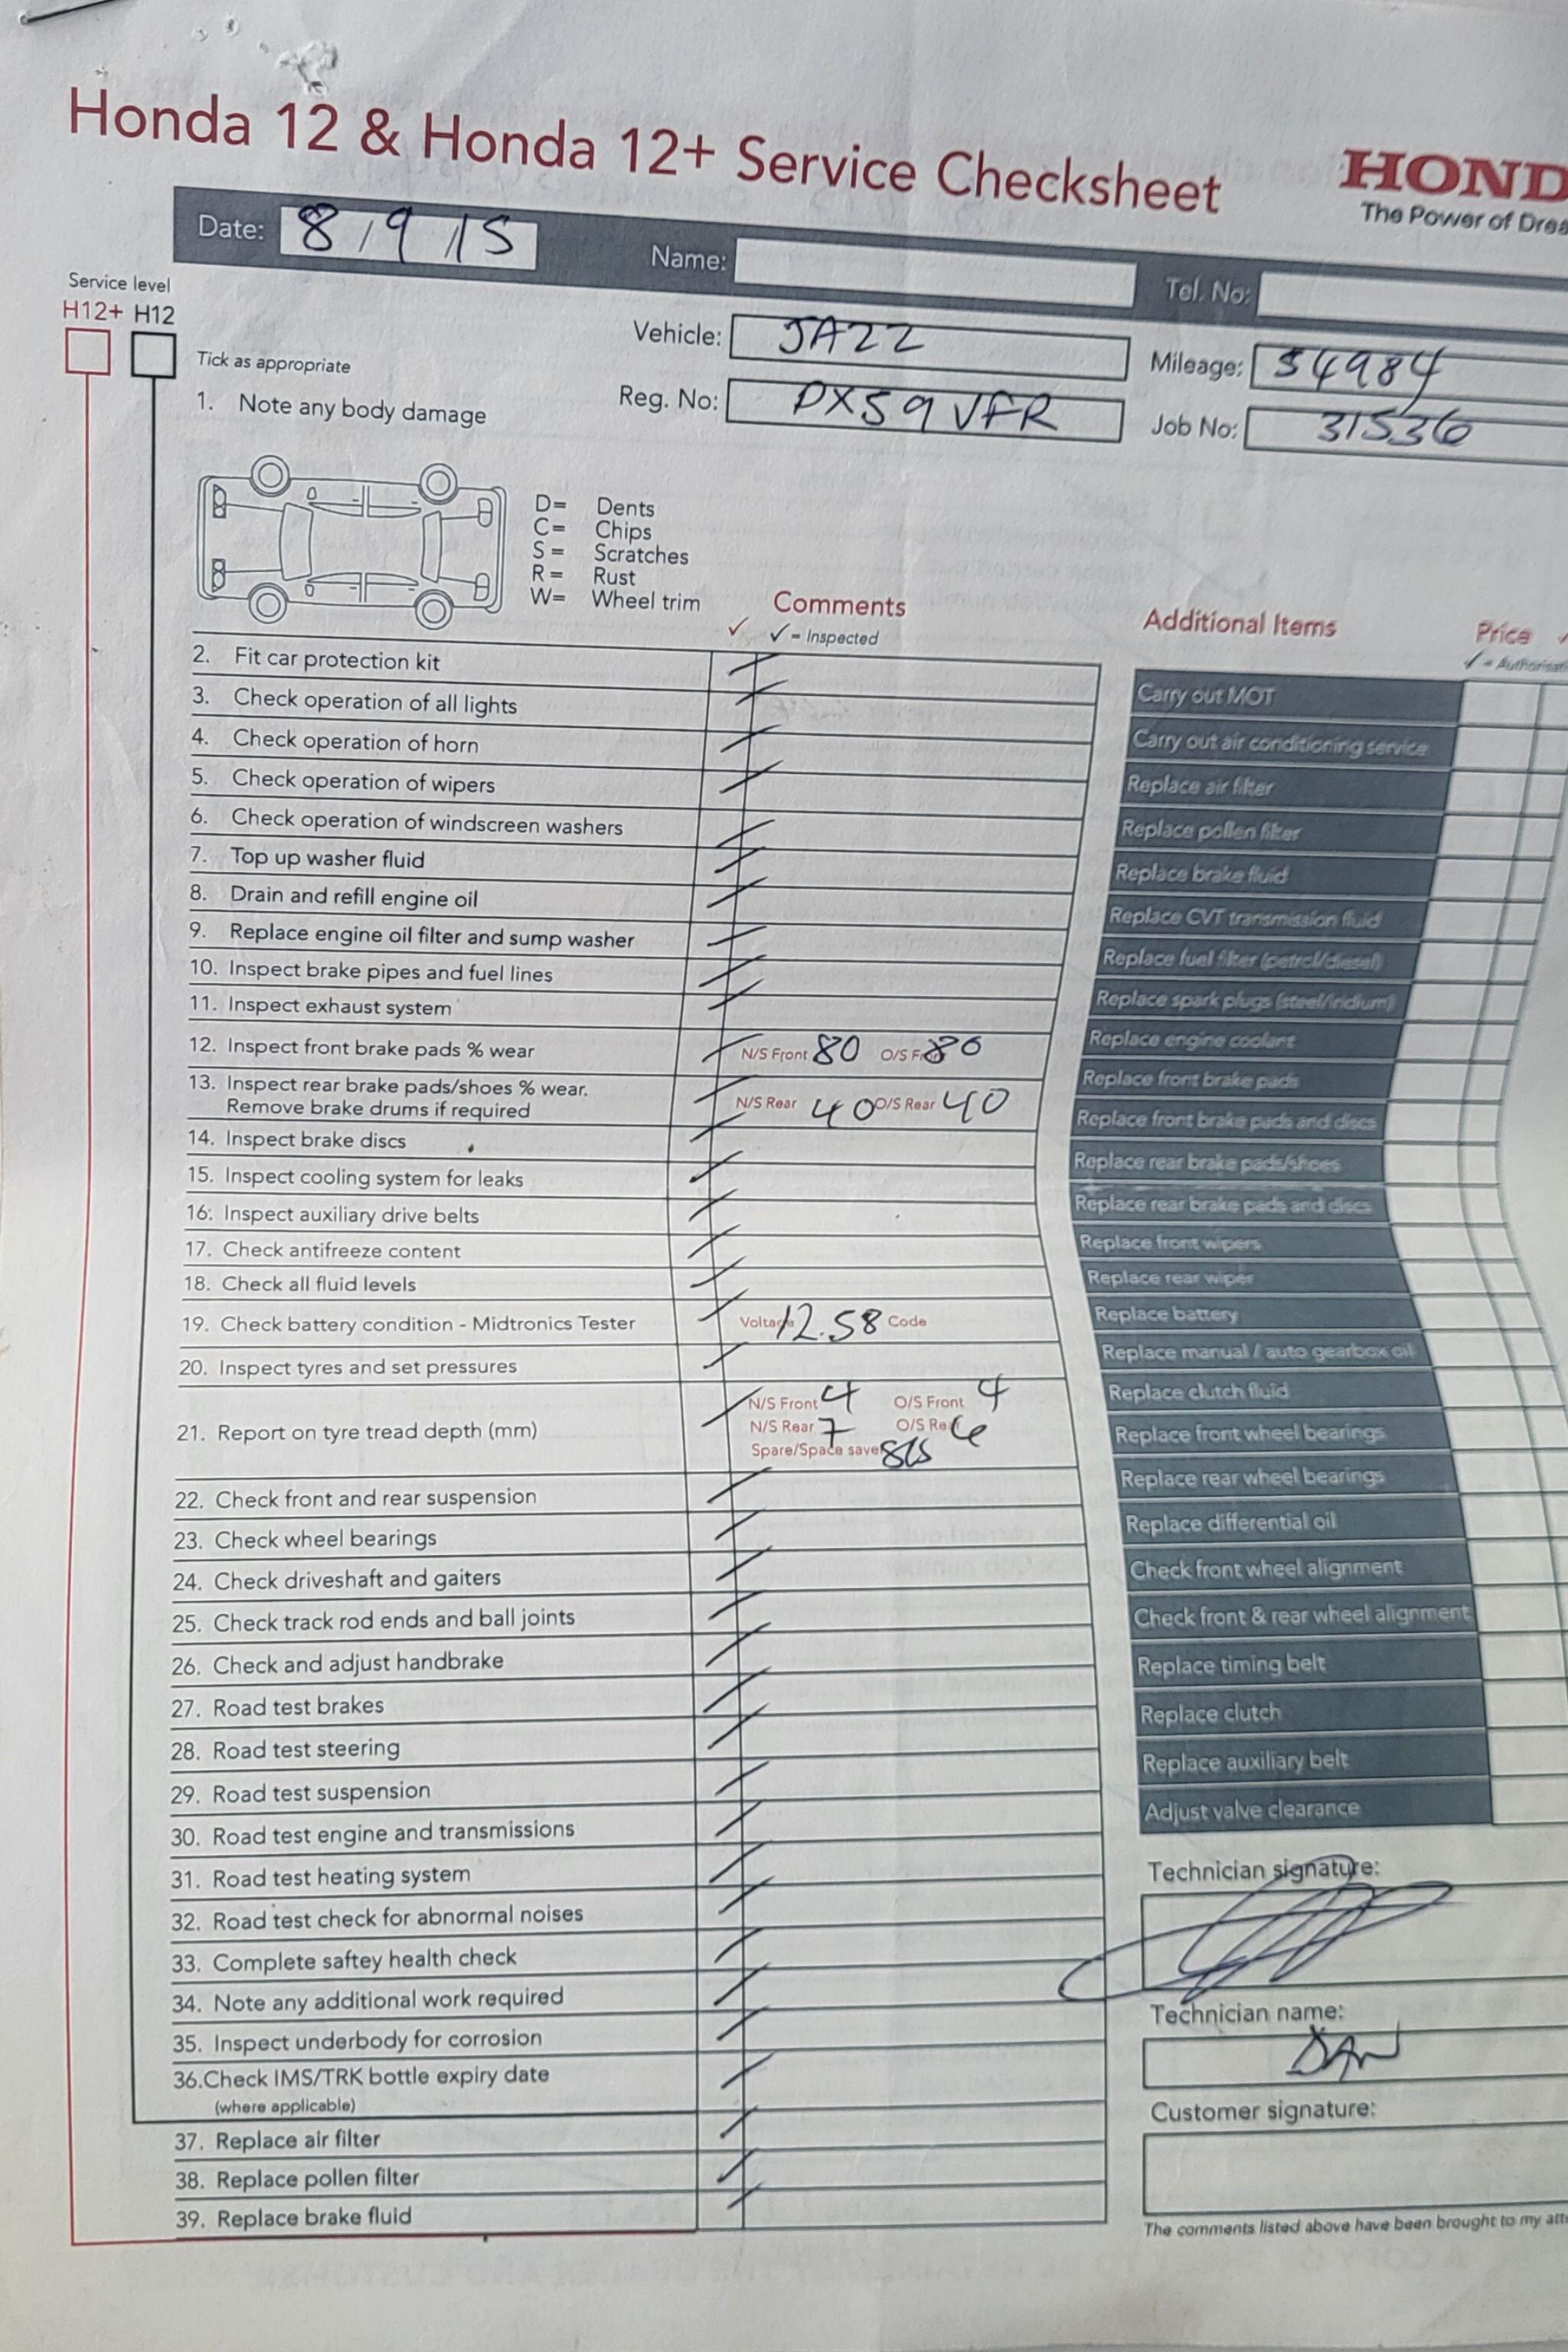 Honda 12 & Honda 12+ Service Checksheet
HOND
The Power of Drea
Date: 8/9/15
Name:
Tel. No:
Service level
H12+ H12
Tick as appropriate
Vehicle: JAZZ
Mileage: 54984
Reg. No: PX59 VFR
Job No: 31536
1. Note any body damage
D= Dents
C= Chips
S= Scratches
R= Rust
W= Wheel trim
Comments
✓ ✓= Inspected
2. Fit car protection kit
3. Check operation of all lights
4. Check operation of horn
5. Check operation of wipers
6. Check operation of windscreen washers
7. Top up washer fluid
8. Drain and refill engine oil
9. Replace engine oil filter and sump washer
10. Inspect brake pipes and fuel lines
11. Inspect exhaust system
12. Inspect front brake pads % wear N/S Front 80 O/S Front 80
13. Inspect rear brake pads/shoes % wear.
Remove brake drums if required N/S Rear 40 O/S Rear 40
14. Inspect brake discs
15. Inspect cooling system for leaks
16. Inspect auxiliary drive belts
17. Check antifreeze content
18. Check all fluid levels
19. Check battery condition - Midtronics Tester Voltage 12.58 Code
20. Inspect tyres and set pressures
21. Report on tyre tread depth (mm)
N/S Front 4 O/S Front 4
N/S Rear 7 O/S Rear 6
Spare/Space saver
22. Check front and rear suspension
23. Check wheel bearings
24. Check driveshaft and gaiters
25. Check track rod ends and ball joints
26. Check and adjust handbrake
27. Road test brakes
28. Road test steering
29. Road test suspension
30. Road test engine and transmissions
31. Road test heating system
32. Road test check for abnormal noises
33. Complete saftey health check
34. Note any additional work required
35. Inspect underbody for corrosion
36.Check IMS/TRK bottle expiry date
(where applicable)
37. Replace air filter
38. Replace pollen filter
39. Replace brake fluid
Additional Items
Price
✓ = Authorisati
Carry out MOT
Carry out air conditioning service
Replace air filter
Replace pollen filter
Replace brake fluid
Replace CVT transmission fluid
Replace fuel filter (petrol/diesel)
Replace spark plugs (steel/iridium)
Replace engine coolant
Replace front brake pads
Replace front brake pads and discs
Replace rear brake pads/shoes
Replace rear brake pads and discs
Replace front wipers
Replace rear wiper
Replace battery
Replace manual / auto gearbox oil
Replace clutch fluid
Replace front wheel bearings
Replace rear wheel bearings
Replace differential oil
Check front wheel alignment
Check front & rear wheel alignment
Replace timing belt
Replace clutch
Replace auxiliary belt
Adjust valve clearance
Technician signature:
Technician name:
DAN
Customer signature:
The comments listed above have been brought to my atte